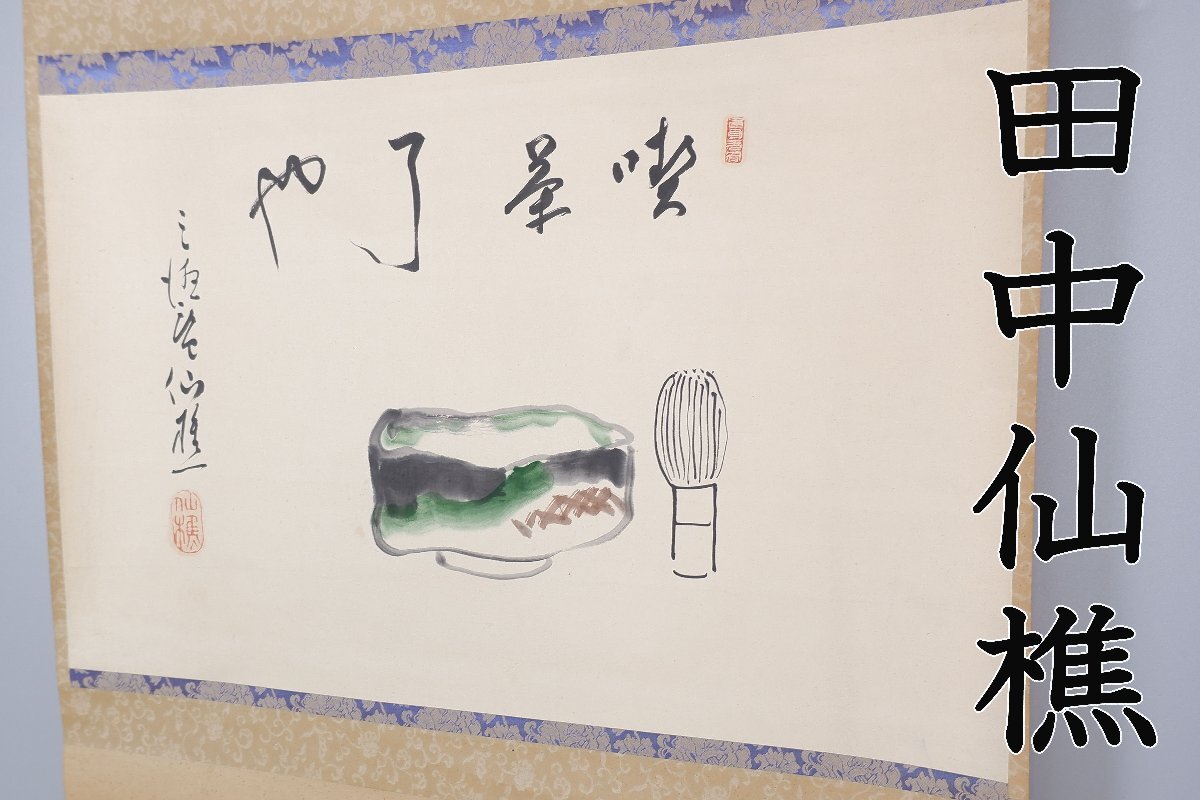 田中仙樵
喫茶了也
三徳庵仙樵
仙樵